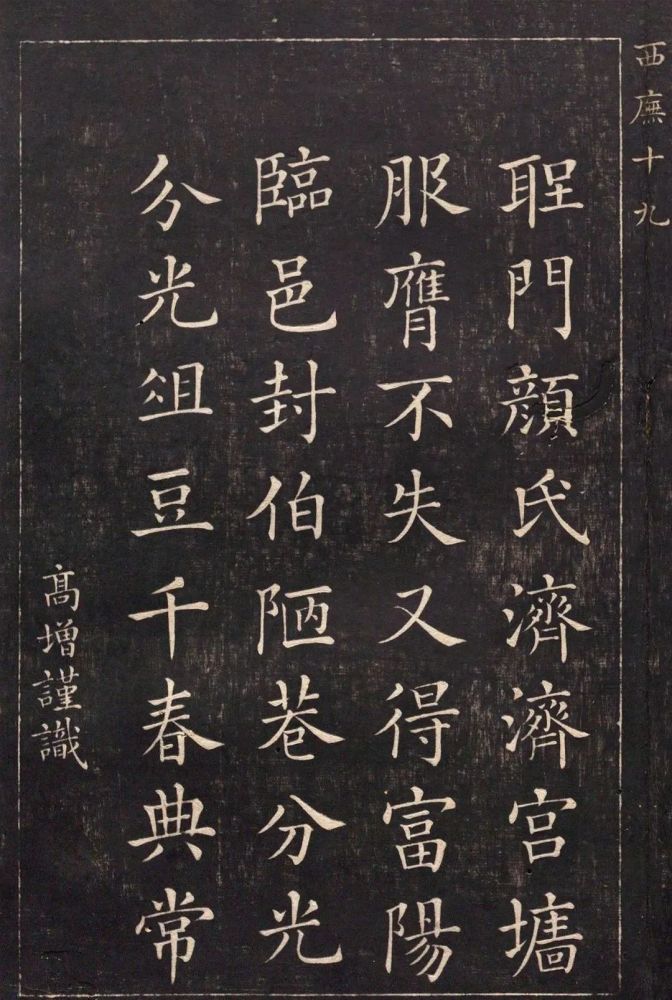 西廡十九
聖門顔氏濟濟宫墻
服膺不失又得富陽
臨邑封伯陋巷分光
分光俎豆千春典常
高增謹識